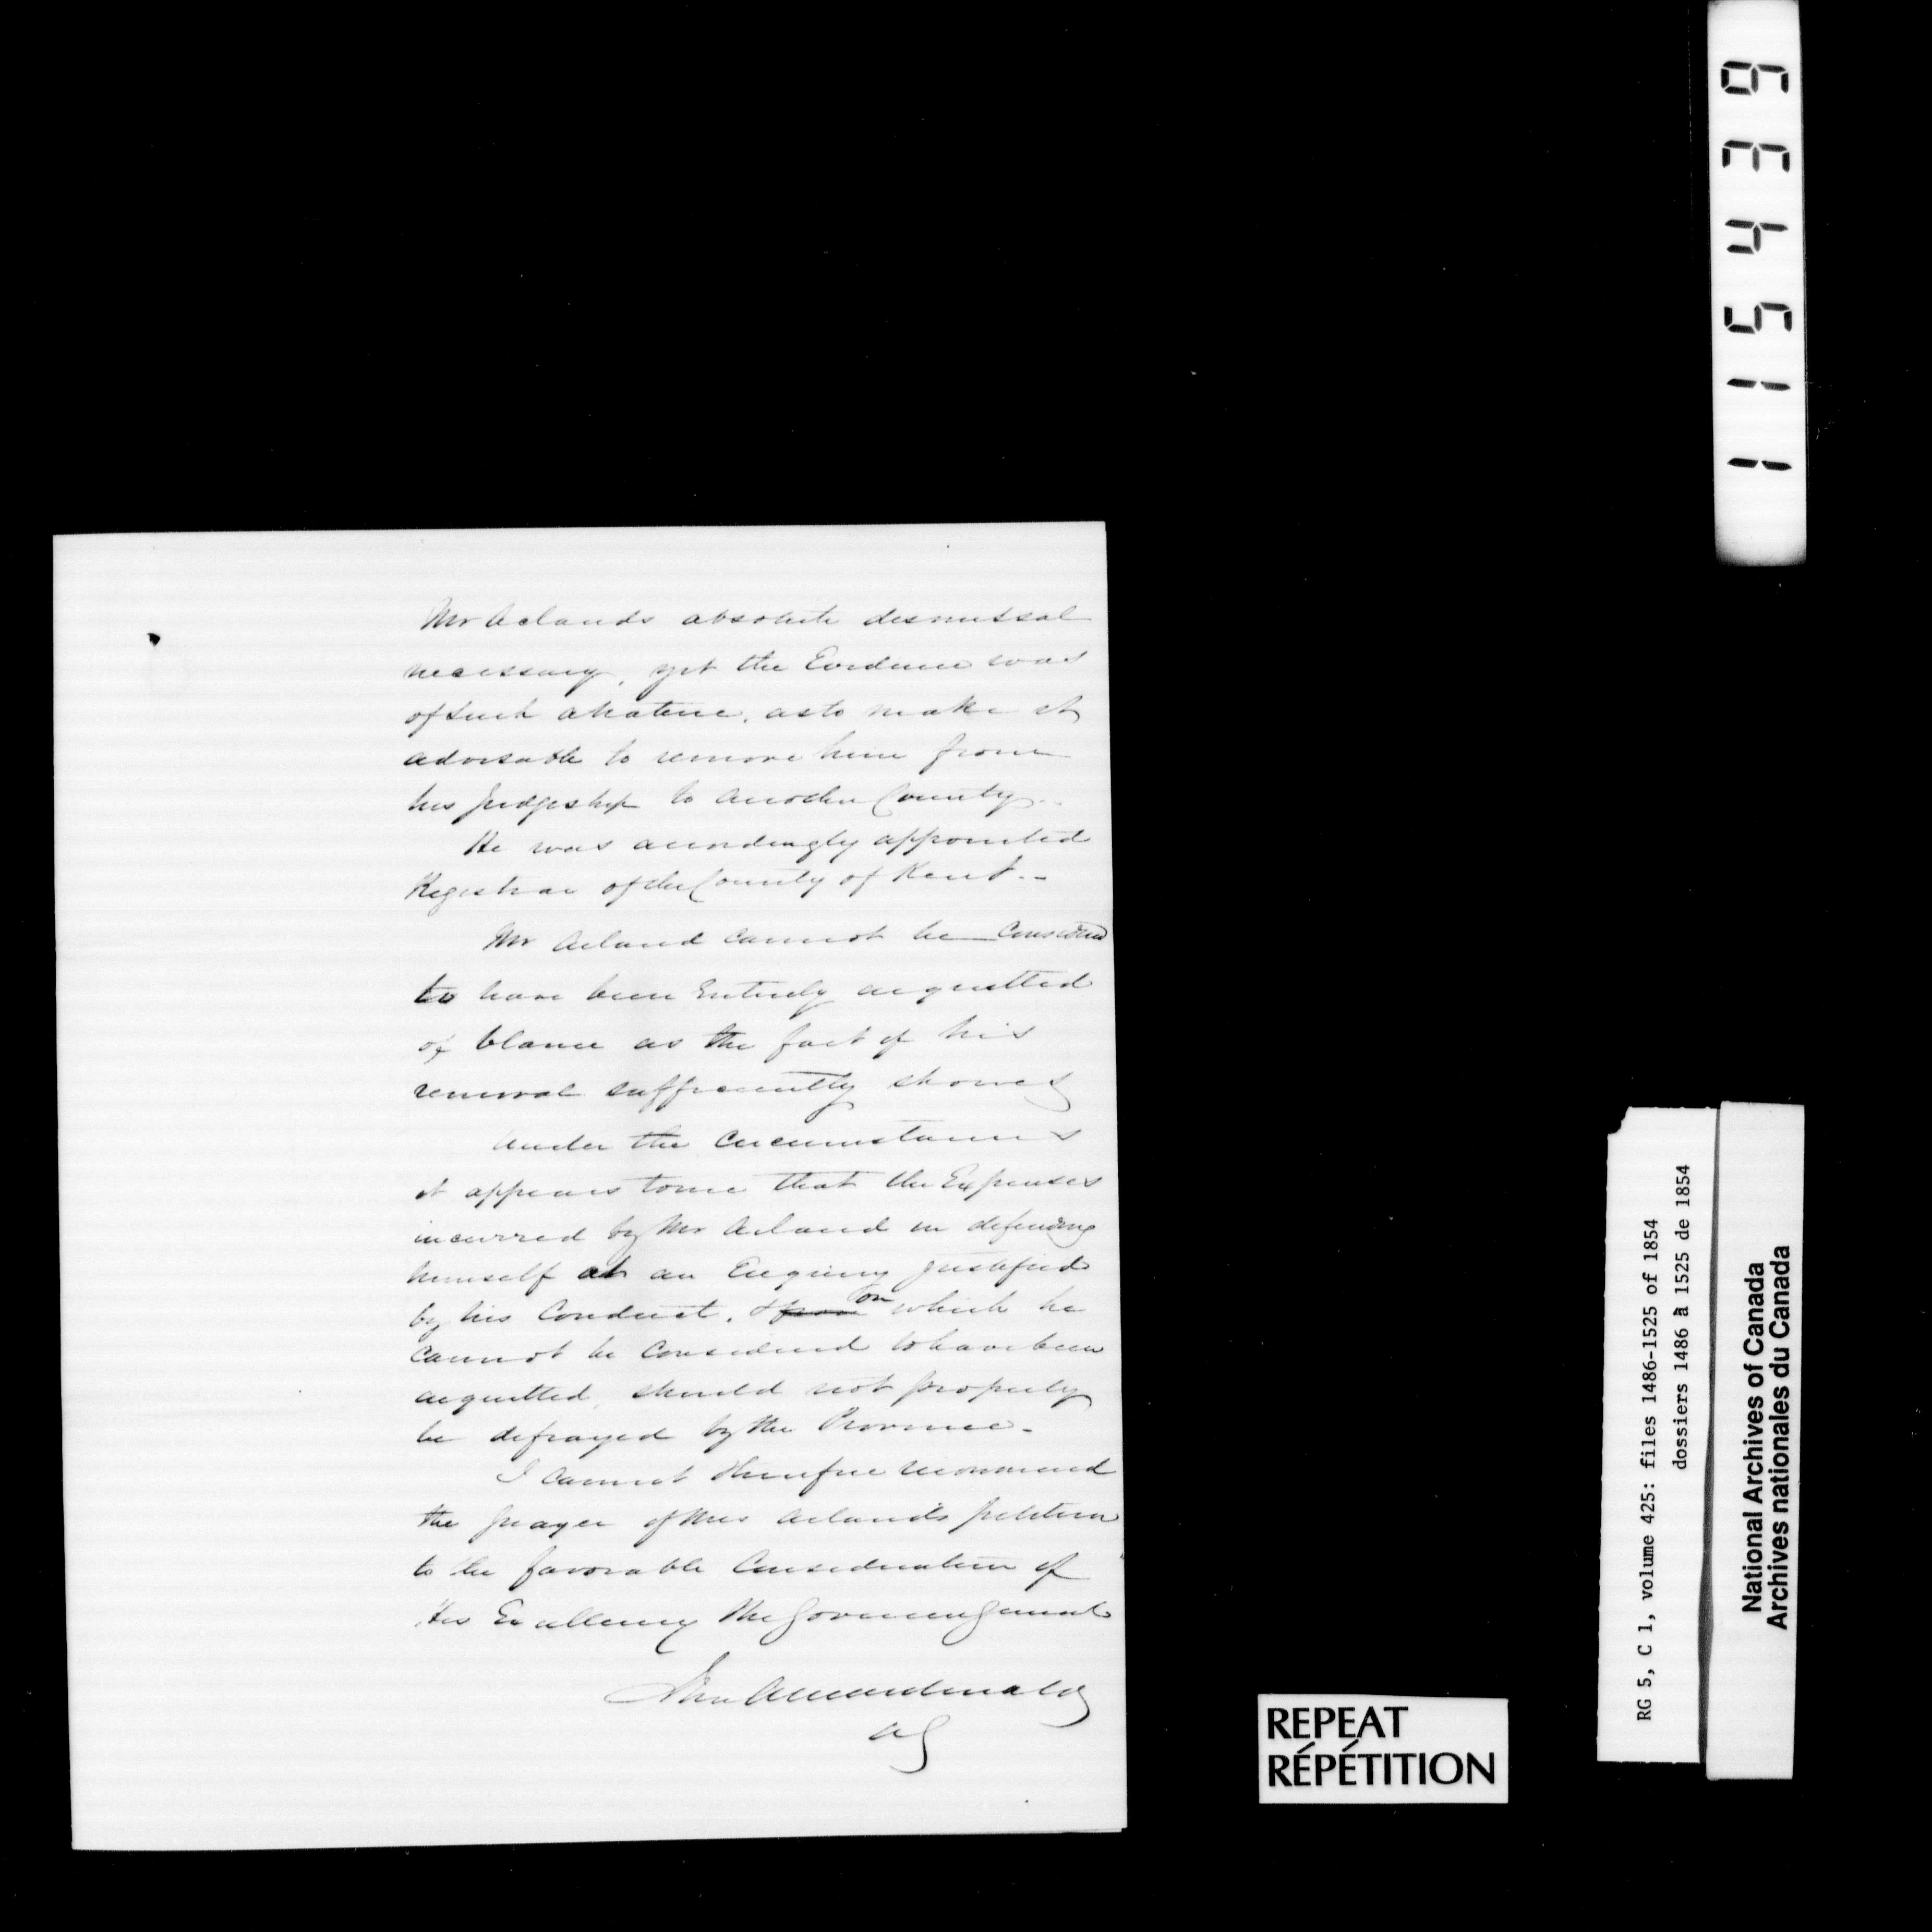 Mr Aclands absolute dismissal
necessary, yet the Evidence was
of such a nature, as to make it
advisable to remove him from
his Judgeship to another County.
He was accordingly appointed
Registrar of the County of Kent.-
Mr Acland cannot be Considered
to have been Entirely acquitted
of blame as the fact of his
removal sufficiently shows
Under the Circumstances
it appears to me that the Expenses
incurred by Mr Acland in defending
himself at an Enquiry justified
by his Conduct, & from on which he
cannot be Considered to have been
acquitted, should not properly
be defrayed by the Province-
I cannot therefore recommend
the prayer of Mrs Acland's petition
to the favorable Consideration of
His Excellency The Governor General
John A Macdonald
AG
REPEAT
RÉPÉTITION
RG 5, C 1, volume 425: files 1486-1525 of 1854
dossiers 1486 à 1525 de 1854
National Archives of Canada
Archives nationales du Canada
115439